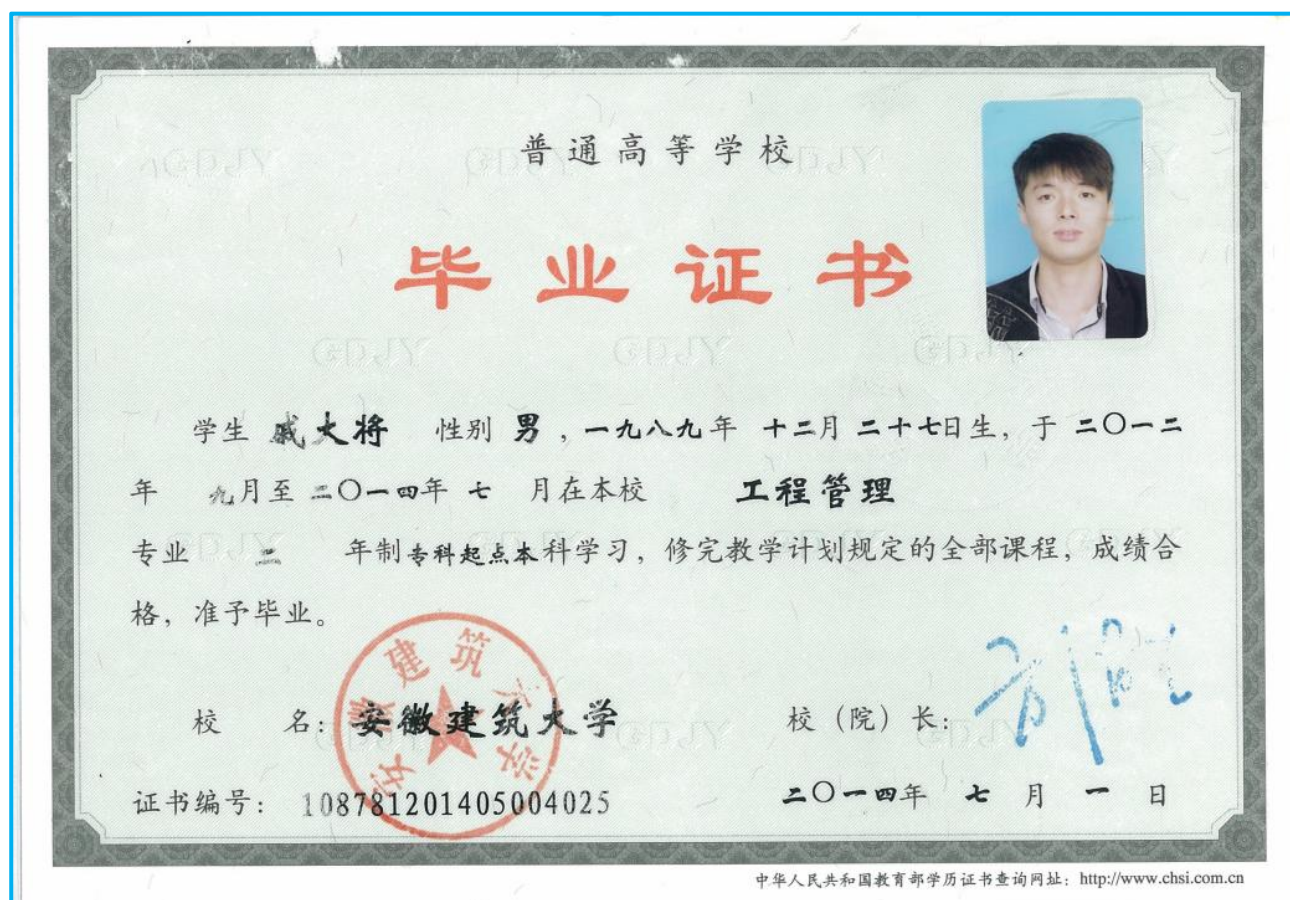 普通高等学校
毕业证书
学生 戚大将 性别 男，一九八九年 十二月 二十七日生，于 二〇一二
年 九月至 二〇一四年 七 月在本校 工程管理
专业 二 年制专科起点本科学习，修完教学计划规定的全部课程，成绩合
格，准予毕业。
安徽建筑大学
校 名：安徽建筑大学 校（院）长：
证书编号：108781201405004025 二〇一四年 七 月 一 日
中华人民共和国教育部学历证书查询网址：http://www.chsi.com.cn